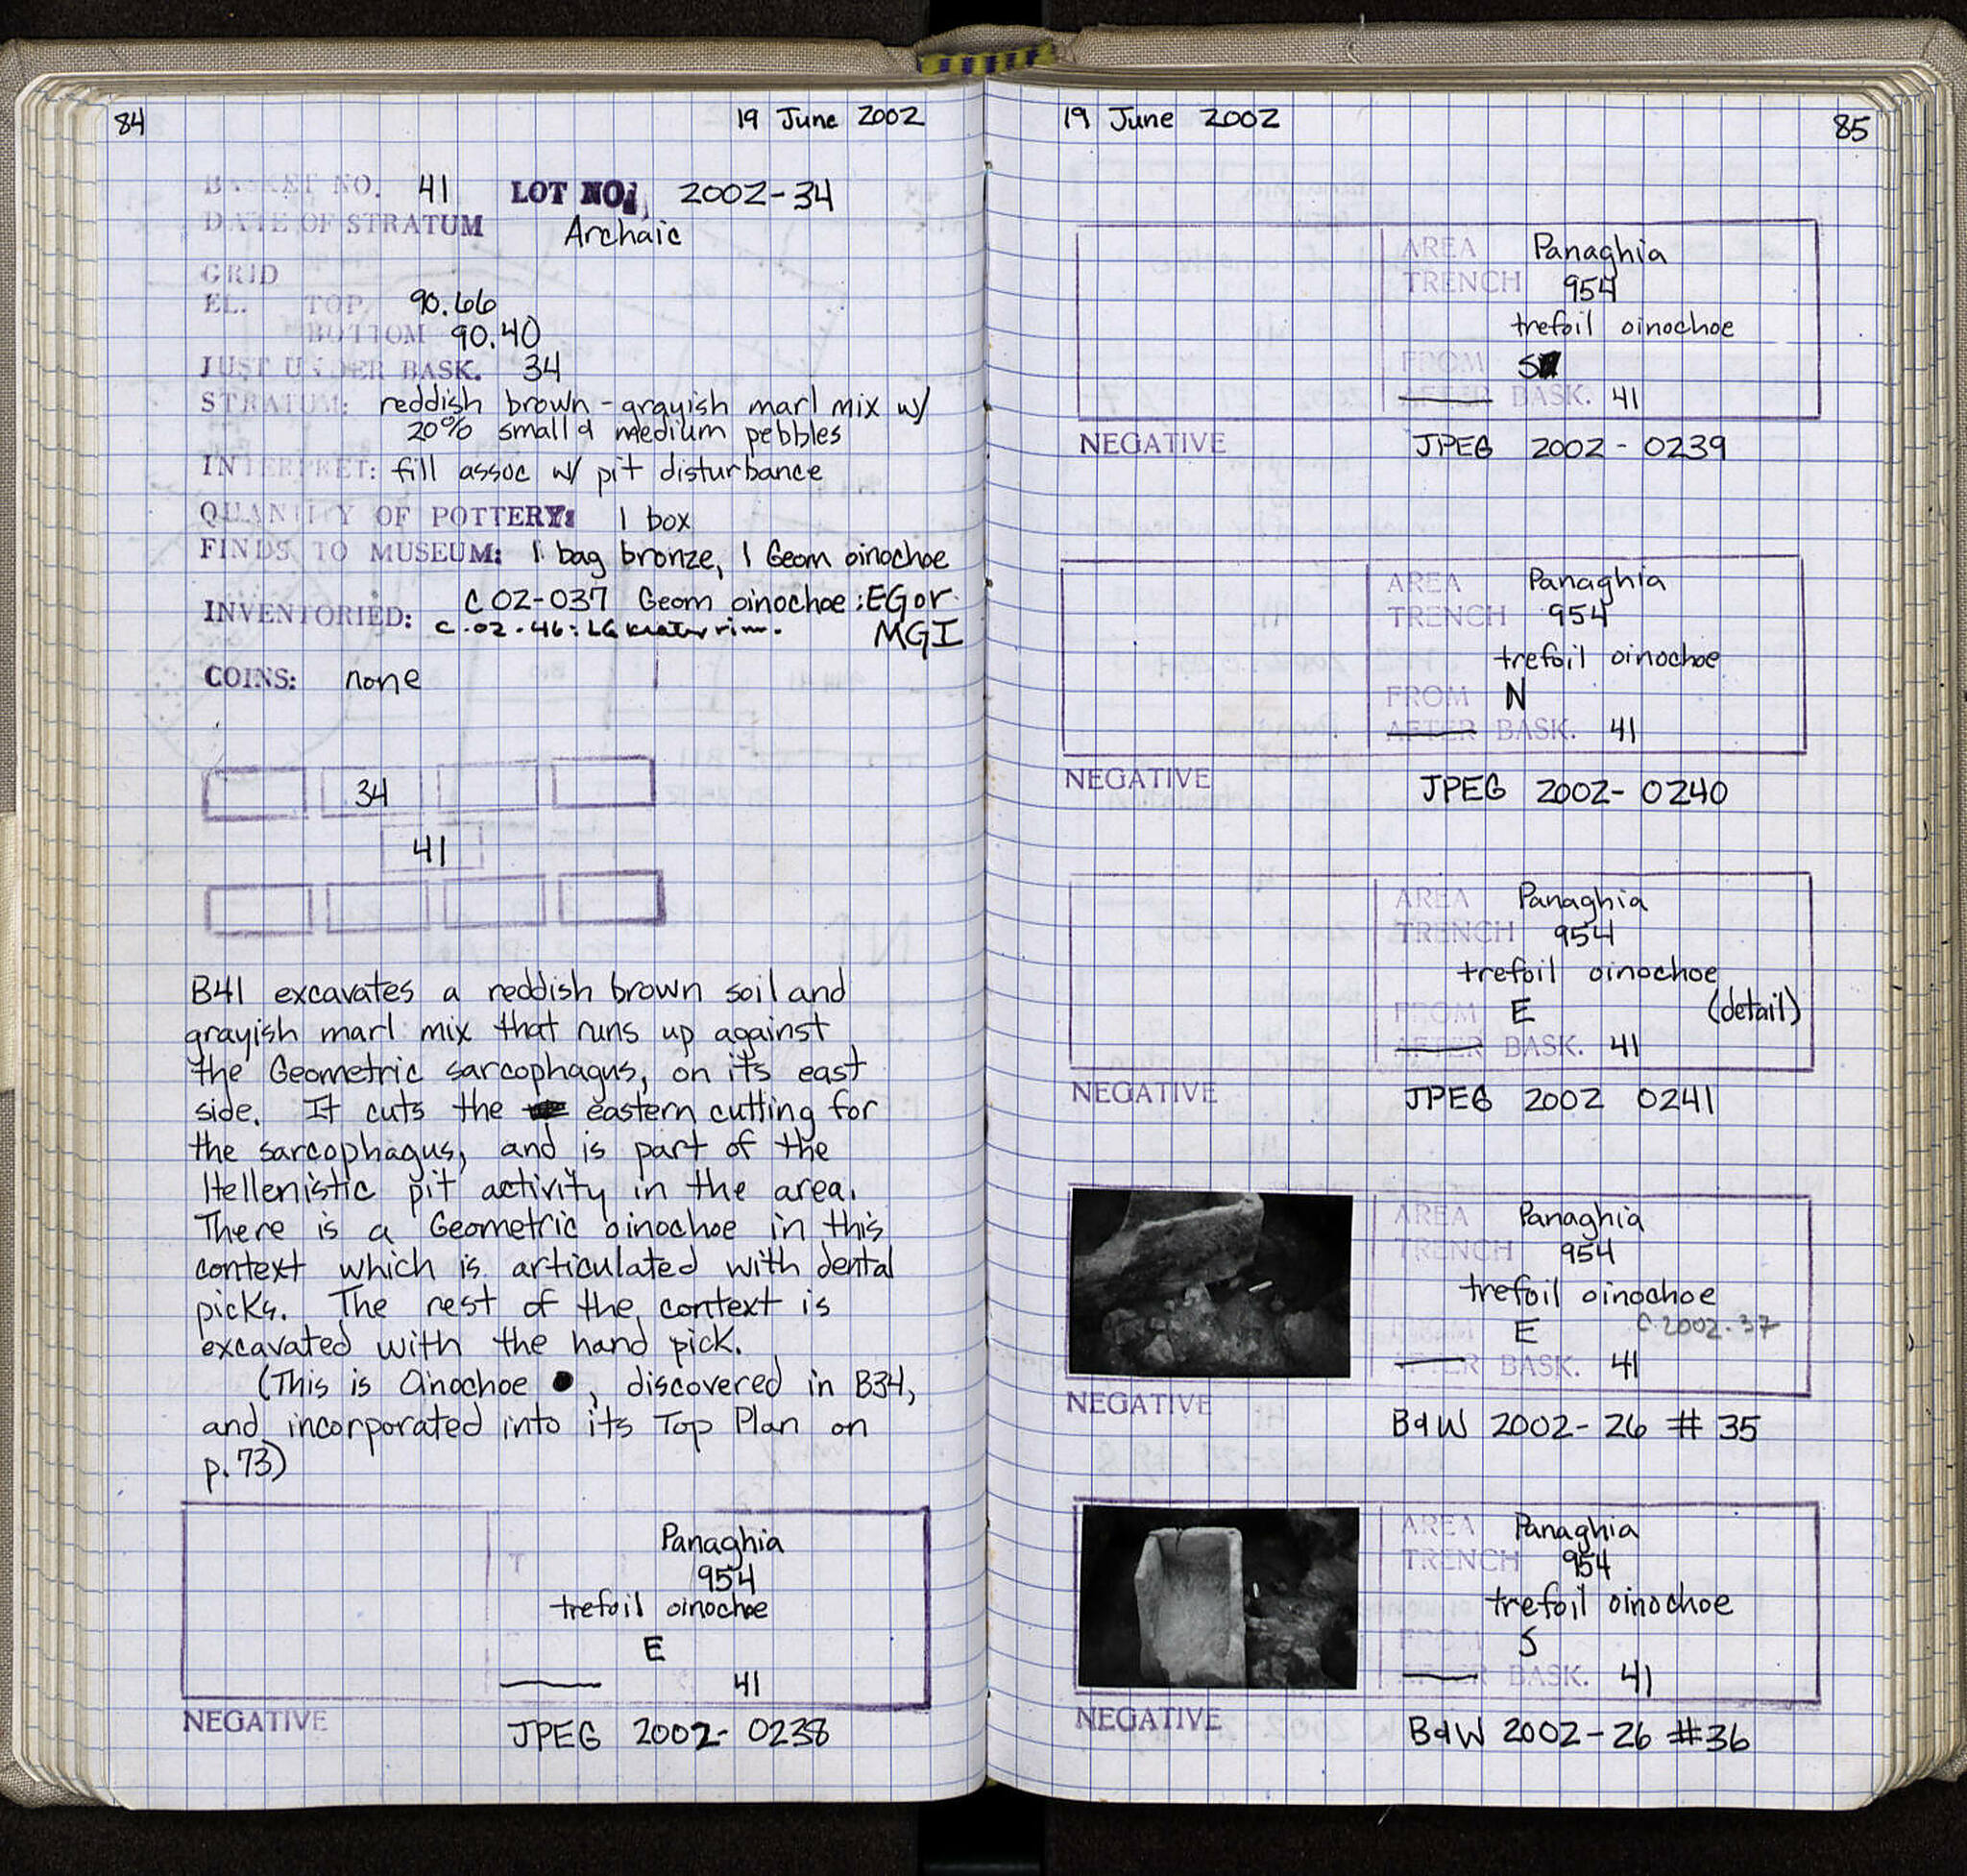 84
19 June 2002
BASKET NO. 41 LOT NO. 2002-34
DATE OF STRATUM Archaic
GRID
EL. TOP 90.66
BOTTOM 90.40
JUST UNDER BASK. 34
STRATUM: reddish brown - grayish marl mix w/
20% small & medium pebbles
INTERPRET: fill assoc w/ pit disturbance
QUANTITY OF POTTERY: 1 box
FINDS TO MUSEUM: 1 bag bronze, 1 Geom oinochoe
INVENTORIED: C 02-037 Geom oinochoe: EG or
C.02.46: LG krater rim. MGI
COINS: none
34
41
B41 excavates a reddish brown soil and
grayish marl mix that runs up against
the Geometric sarcophagus, on its east
side. It cuts the eastern cutting for
the sarcophagus, and is part of the
Hellenistic pit activity in the area.
There is a Geometric oinochoe in this
context which is articulated with dental
picks. The rest of the context is
excavated with the hand pick.
(This is Oinochoe , discovered in B34,
and incorporated into its Top Plan on
p.73)
Panaghia
954
trefoil oinochoe
E
41
NEGATIVE JPEG 2002-0238
19 June 2002
85
AREA Panaghia
TRENCH 954
trefoil oinochoe
FROM S
AFTER BASK. 41
NEGATIVE JPEG 2002-0239
AREA Panaghia
TRENCH 954
trefoil oinochoe
FROM N
AFTER BASK. 41
NEGATIVE JPEG 2002-0240
AREA Panaghia
TRENCH 954
trefoil oinochoe
FROM E (detail)
AFTER BASK. 41
NEGATIVE JPEG 2002 0241
AREA Panaghia
TRENCH 954
trefoil oinochoe
FROM E C.2002.37
AFTER BASK. 41
NEGATIVE B&W 2002-26 #35
AREA Panaghia
TRENCH 954
trefoil oinochoe
FROM S
AFTER BASK. 41
NEGATIVE B&W 2002-26 #36